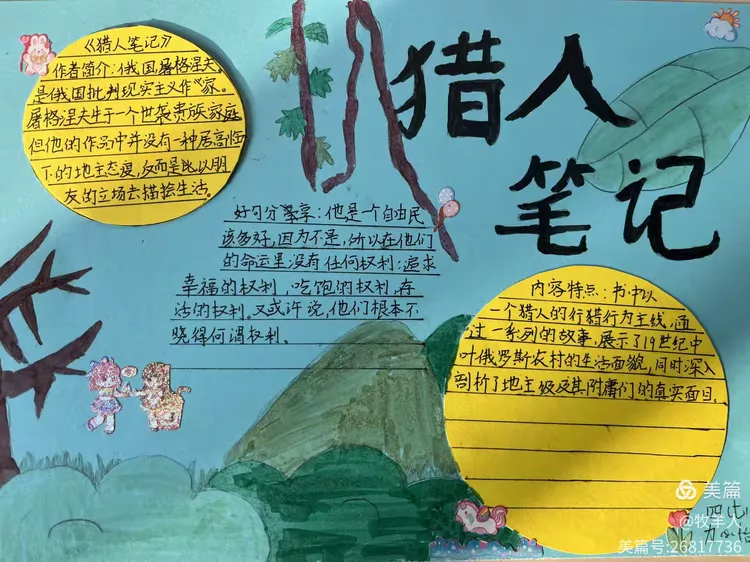 猎人
笔记
《猎人笔记》
作者简介：俄国屠格涅夫
是俄国批判现实主义作家。
屠格涅夫生于一个世袭贵族家庭
但他的作品中并没有一种居高临
下的地主态度，反而是比以朋
友的立场去描绘生活。
好句分享：他是一个自由民
该多好，因为不是，所以在他们
的命运里没有任何权利：追求
幸福的权利，吃饱的权利，存
活的权利。又或许说，他们根本不
晓得何谓权利。
内容特点：书中以
一个猎人的行猎行为主线，通
过一系列的故事，展示了19世纪中
叶俄罗斯农村的生活面貌，同时深入
剖析了地主级及其附庸们的真实面目。
美篇
@牧羊人
美篇号:26817736